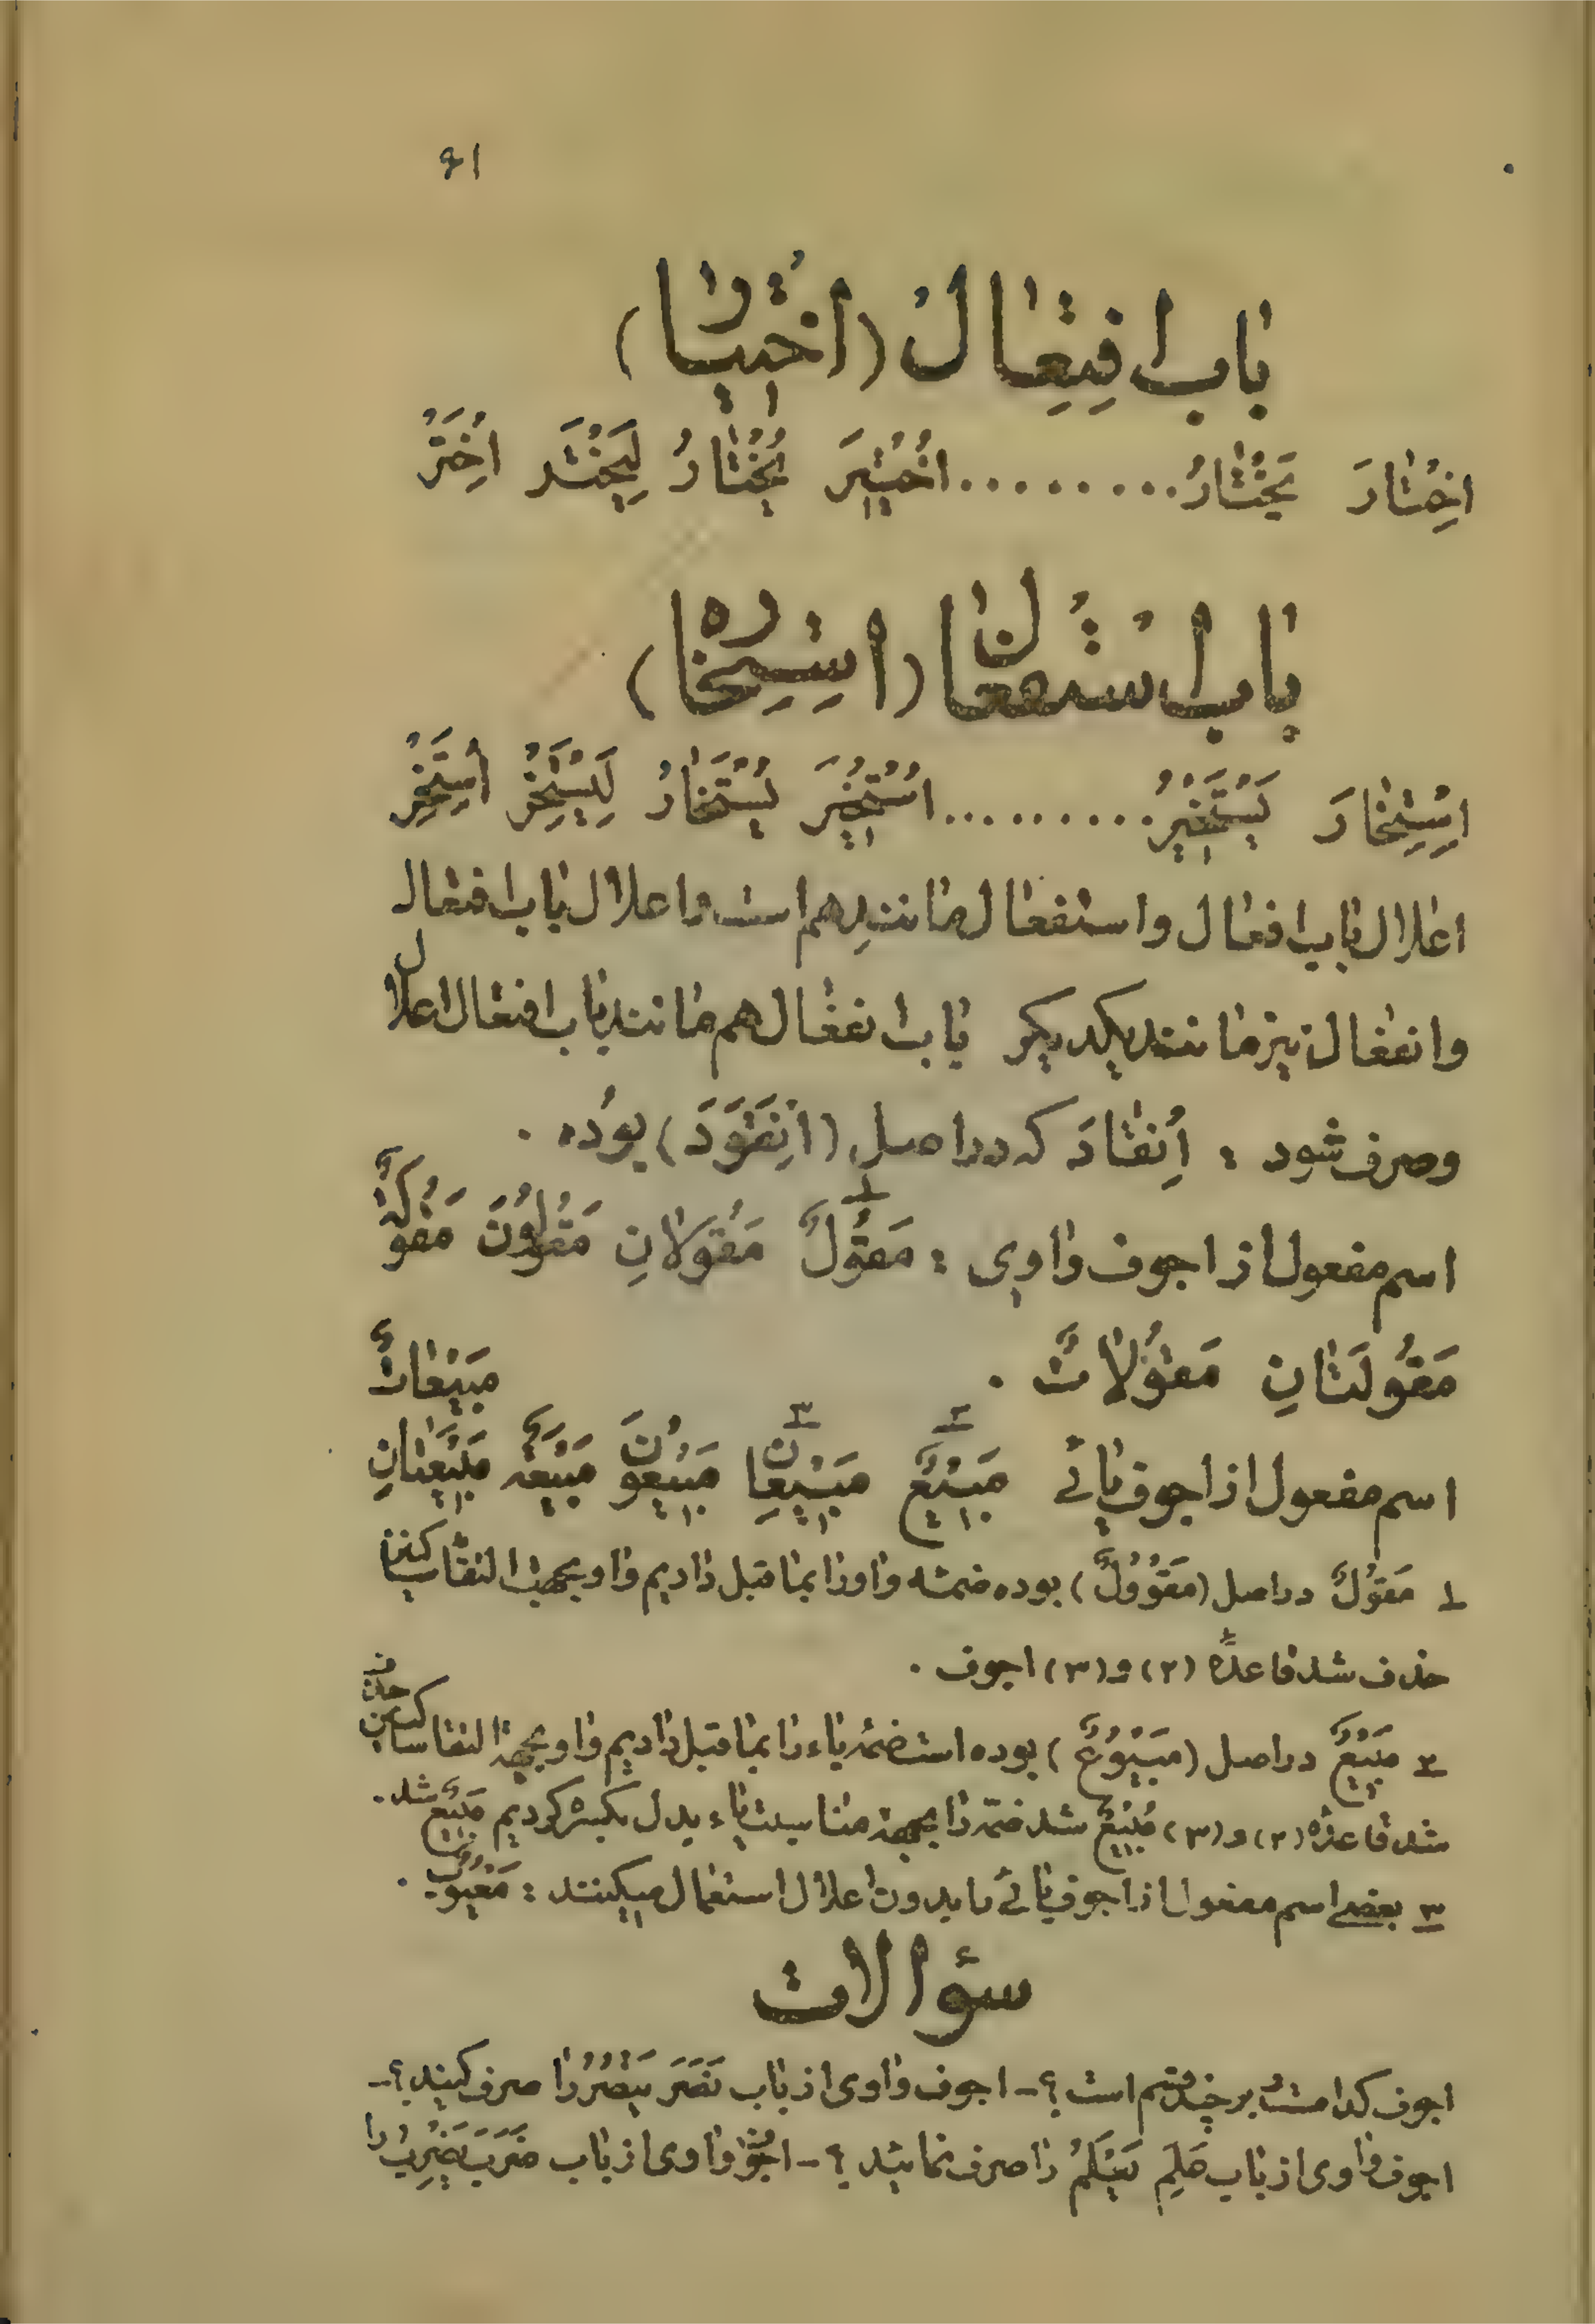 ۶۱
باب افتعال (اختیار)
اِخْتٰارَ یَخْتٰارُ ......... اُخْتیرَ یُخْتٰارُ لِیَخْتَر اِخْتَرْ
باب استفعال (استخاره)
اِسْتِخٰارَ یَسْتَخیرُ .......... اُسْتُخیرَ یُسْتَخٰارُ لِیَسْتَخِرْ اِسْتَخِرْ
اعلال باب افعال و استفعال مانند هم است و اعلال باب افتعال
و انفعال نیز مانند یکدیگر باب انفعال هم مانند باب افتعال اعلال
و صرف شود : اِنقٰادَ که در اصل (اِنْقَوَدَ) بوده .
اسم مفعول از اجوف واوی : مَقُولٌ مَقُولٰانِ مَقُولُونَ مَقُولَةٌ
مَقُولَتٰانِ مَقُولٰاتٌ . مَبیعٰاتٌ
اسم مفعول از اجوف یائی مَبیعٌ مَبیعٰانِ مَبیعُونَ مَبیعَةٌ مَبیعَتٰانِ
۱ مَقُولٌ در اصل (مَقْوُولٌ) بوده ضمّه واو را بما قبل دادیم واو بجهت التقاء ساکنین
حذف شد قاعدهٔ (۲) و (۳) اجوف .
۲ مَبیعٌ در اصل (مَبْیُوعٌ) بوده است ضمّهٔ یاء را بما قبل دادیم واو بجهة التقاء ساکنین حذف
شد قاعدهٔ (۲) و (۳) مَبُیْعٌ شد ضمّه را بجهة مناسبت یاء بدل بکسره کردیم مَبیعٌ شد .
۳ بعضی اسم مفعول از اجوف یائی را بدون اعلال استعمال میکنند : مَعْیُوبٌ .
سؤالات
اجوف کدامست و بر چند قسم است ؟ - اجوف واوی از باب نَصَرَ یَنْصُرُ را صرف کنید ؟ -
اجوف واوی از باب عَلِمَ یَعْلَمُ را صرف نمائید ؟ - اجوف واوی از باب ضَرَبَ یَضْرِبُ را